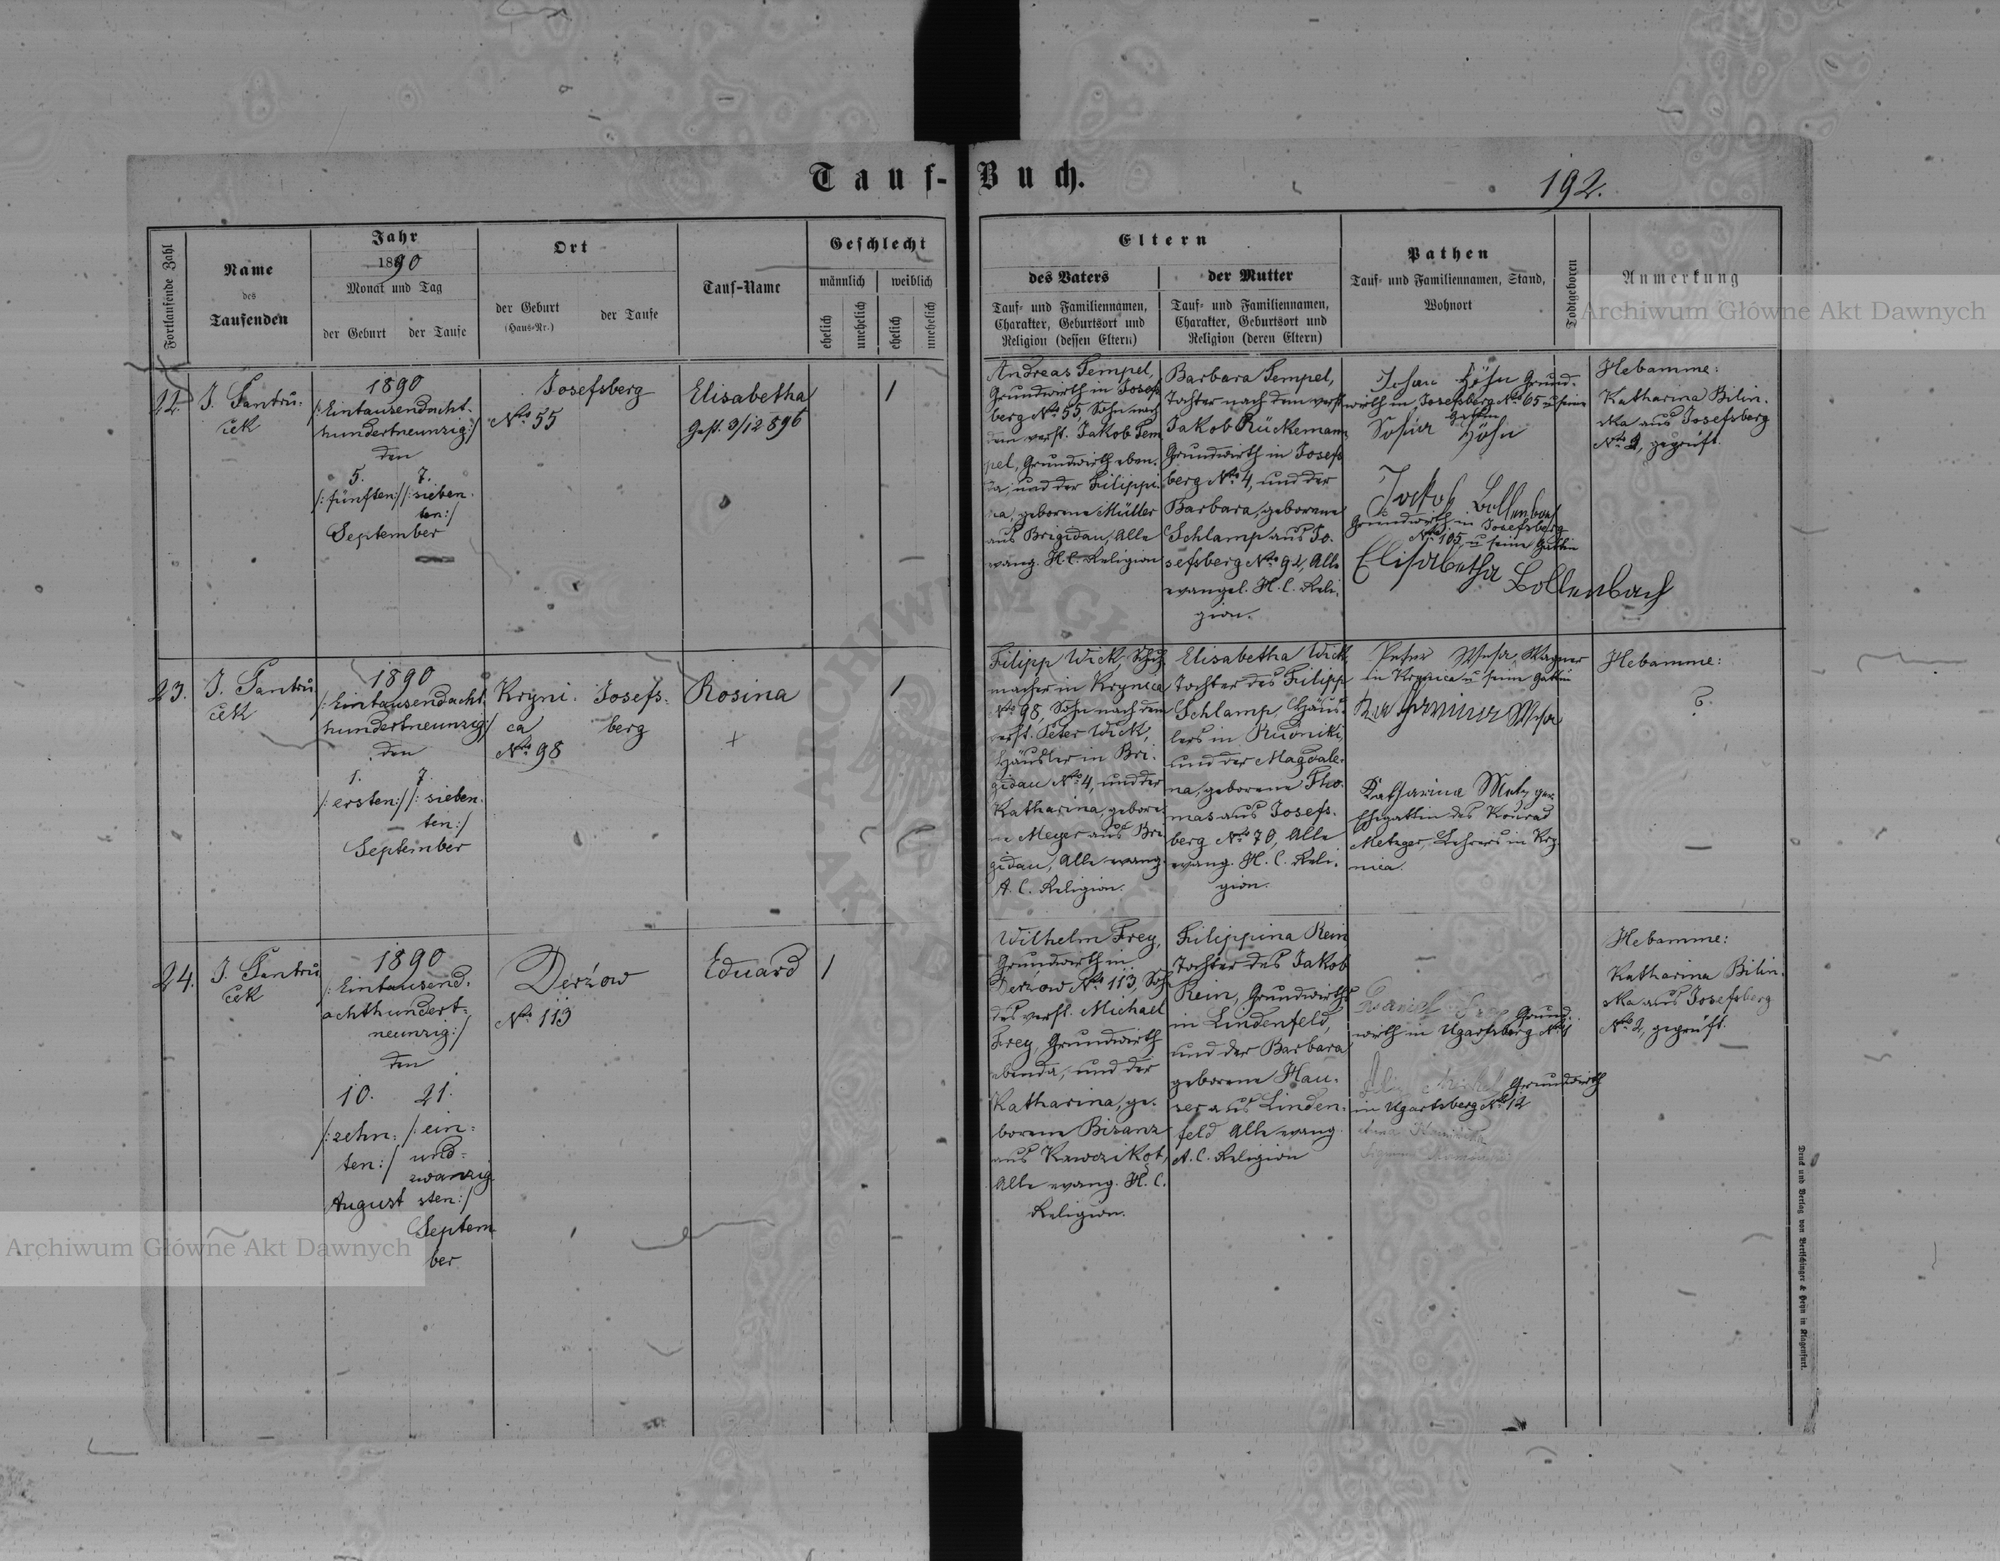 Tauf-Buch.
192.
Fortlaufende Zahl
Name
des
Taufenden
Jahr
1890
Monat und Tag
der Geburt
der Taufe
Ort
der Geburt
(Haus-Nr.)
der Taufe
Tauf-Name
Geschlecht
männlich
weiblich
ehelich
unehelich
ehelich
unehelich
Eltern
des Vaters
Tauf- und Familiennamen,
Charakter, Geburtsort und
Religion (dessen Eltern)
der Mutter
Tauf- und Familiennamen,
Charakter, Geburtsort und
Religion (deren Eltern)
Pathen
Tauf- und Familiennamen, Stand,
Wohnort
Todtgeboren
Anmerkung
Archiwum Główne Akt Dawnych
22.
J. Jantru-
ček
1890
/:Eintausendacht-
hundertneunzig:/
den
5. 7.
/:fünften:/ /:sieben-
ten:/
September
Josefsberg
No. 55
Elisabetha
Gest. 3/12 896
1
Andreas Tempel,
Grundwirth in Josefs-
berg No. 55, Sohn nach
dem verst. Jakob Tem
pel, Grundwirth eben-
da, und der Filippi-
na, geborene Müller
aus Brigidau, Alle
evang. H. C. Religion
Barbara Tempel,
Tochter nach dem verst.
Jakob Rückemann
Grundwirth in Josefs
berg No. 4, und der
Barbara, geborene
Schlamp aus Jo-
sefsberg No. 92, Alle
evangel. H. C. Reli-
gion.
Johan Höhn Grund-
wirth in Josefsberg No. 65 u seine
Gattin
Sofia Höhn
Jakob Bollenbach
Grundwirth in Josefsberg
No. 105, u seine Gattin
Elisabetha Bollenbach
Hebamme:
Katharina Bilin-
ska aus Josefsberg
No. 2, geprüft.
23.
J. Jantru
ček
1890
/:Eintausendacht-
hundertneunzig:/
den
1. 7.
/:ersten:/ /:sieben-
ten:/
September
Kryni-
ca
No. 98
Josefs-
berg
Rosina
1
Filipp Wick, Schuh
macher in Krynica
No. 98, Sohn nach dem
verst. Peter Wick,
Häusler in Bri-
gidau No. 4, und der
Katharina, gebore-
ne Meyer aus Bri
gidau, Alle evang.
A. C. Religion.
Elisabetha Wick
Tochter des Filipp
Schlamp, Häus-
lers in Rudniki,
und der Magdale-
na, geborene Tho-
mas aus Josefs-
berg No. 70, Alle
evang. H. C. Reli-
gion.
Peter Wagner
in Krynica u seine Gattin
Katharina Metzger
Ehegattin des Konrad
Metzger, Lehrers in Kry
nica.
Hebamme:
?
24.
J. Jantru
ček
1890
/:Eintausend-
achthundert-
neunzig:/
den
10. 21.
/:zehn- /:ein-
ten:/ und-
zwanzig
August sten:/
Septem
ber
Derżow
No. 113
Eduard
1
Wilhelm Frey,
Grundwirth in
Derzow No. 113, Sohn
des verst. Michael
Frey, Grundwirth
ebenda, und der
Katharina, ge-
borene Bisanz
aus
Alle evang. H. C.
Religion.
Filippina Rein
Tochter des Jakob
Rein, Grundwirths
in Lindenfeld,
und der Barbara
geborene Hau-
ser aus Linden-
feld Alle evang.
A. C. Religion
Grund-
wirth in Ugartsberg
Grundwirth
in Ugartsberg No. 12
Hebamme:
Katharina Bilin-
ska aus Josefsberg
No. 2, geprüft.
Archiwum Główne Akt Dawnych
Druck und Verlag von Bertschinger & Heyn in Klagenfurt.